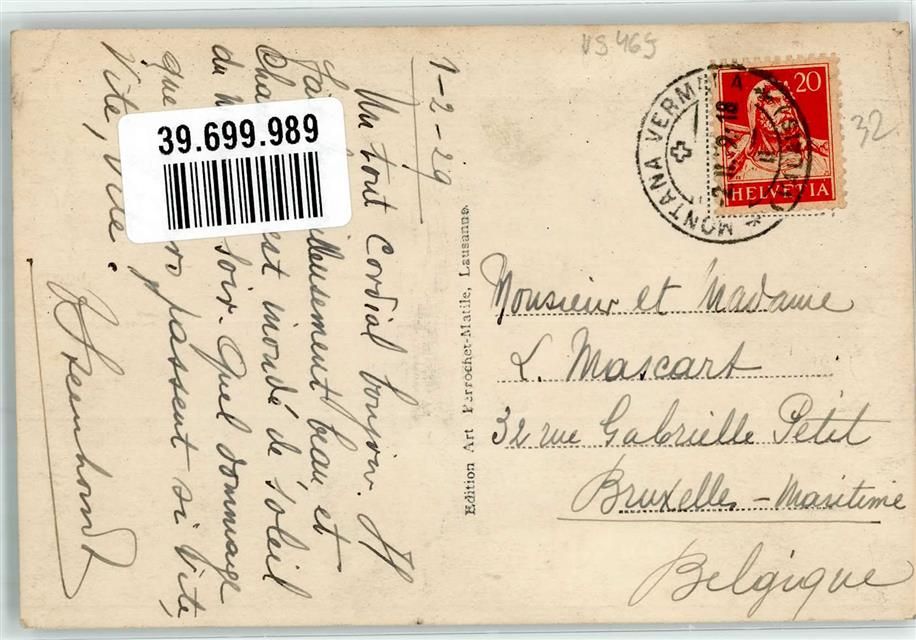 VS 465
1-2-29
Un tout Cordial bonjour. Il
fait illeusement beau et
Cha est inondé de soleil
du soir. Quel dommage
que passent si Vite,
Vite, Vite.
39.699.989
Edition Art Perrochet-Matile, Lausanne.
MONTANA VERMALA
20
HELVETIA
32
Monsieur et Madame
L. Mascart
32 rue Gabrielle Petit
Bruxelles - Maritime
Belgique